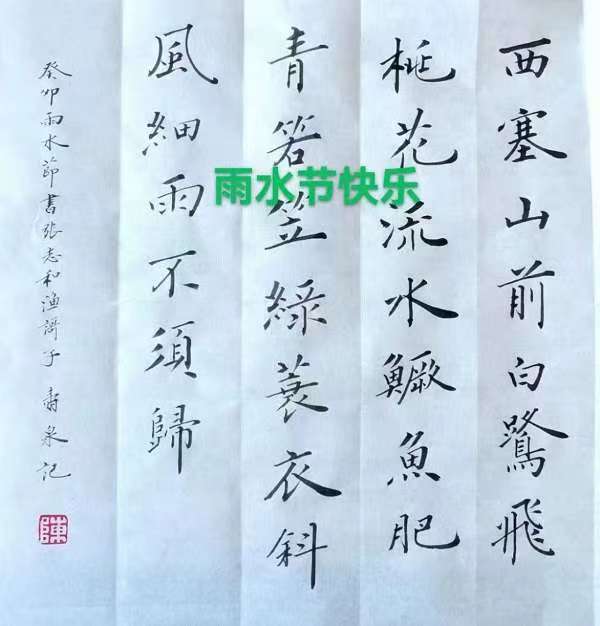 西塞山前白鷺飛
桃花流水鱖魚肥
青箬笠綠蓑衣斜
風細雨不須歸
癸卯雨水節書張志和漁謌子 壽泉記
陳
雨水节快乐